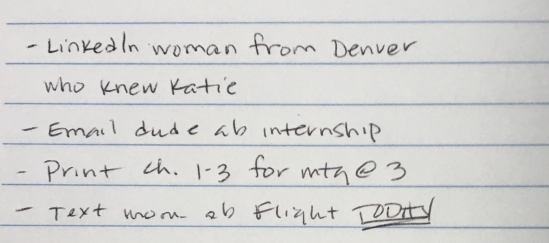 - LinkedIn woman from Denver
who knew Katie
- Email dude ab internship
- Print ch. 1-3 for mtg @ 3
- Text mom ab Flight TODAY